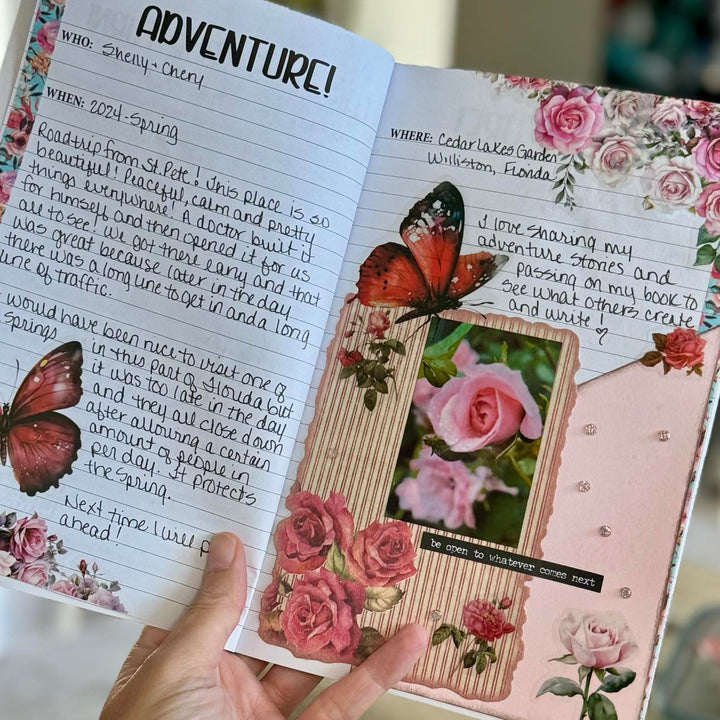 ADVENTURE!
WHO: Shelly + Chery
WHEN: 2024-Spring
Roadtrip from St. Pete! This place is so
beautiful! Peaceful, calm and pretty
things everywhere! A doctor built it
for himself and then opened it for us
all to see! We got there early and that
was great because later in the day
there was a long line to get in and a long
line of traffic.
would have been nice to visit one of
springs in this part of Florida but
it was too late in the day
and they all close down
after allowing a certain
amount of people in
per day. It protects
the spring.
Next time I will p
ahead!
WHERE: Cedar Lakes Garden
Williston, Florida
I love sharing my
adventure stories and
passing on my book to
see what others create
and write! ♡
be open to whatever comes next